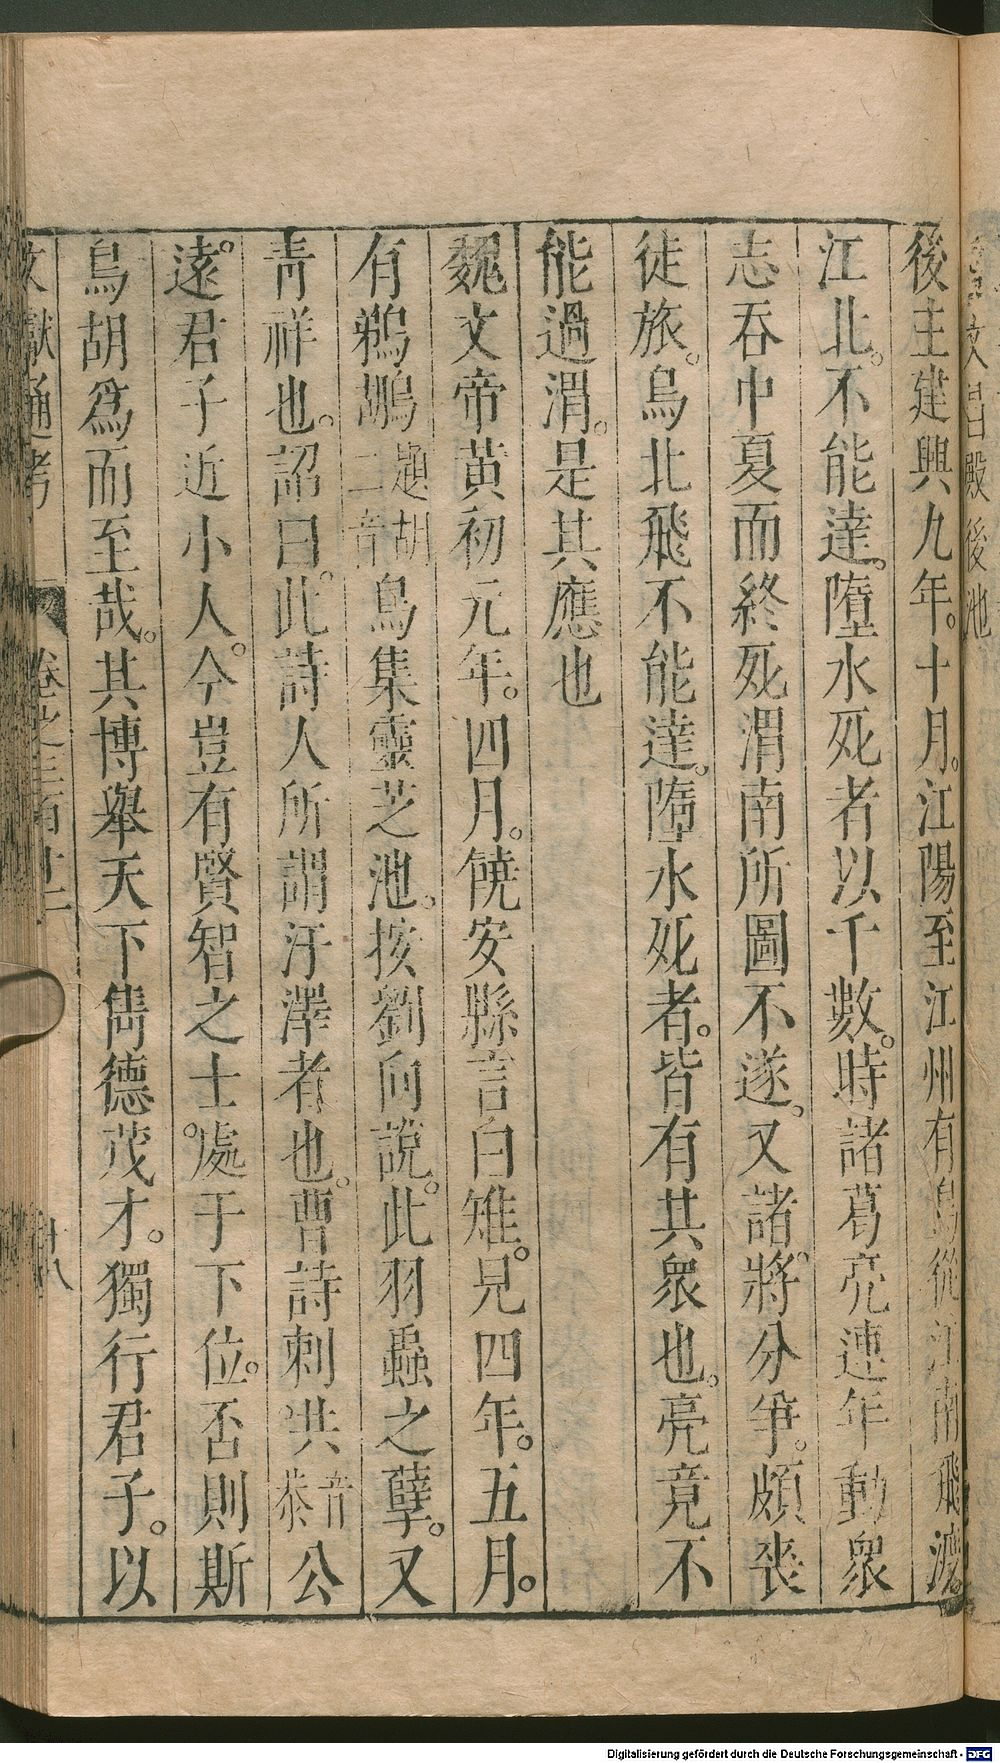 文昌殿後池
後主建興九年。十月。江陽至江州有鳥從江南飛渡。
江北。不能達。墮水死者以千數。時諸葛亮連年動衆
志吞中夏而終死渭南所圖不遂。又諸將分爭。頗丧
徒旅。烏北飛不能達。墮水死者。皆有其衆也。亮竟不
能過渭。是其應也
魏文帝黃初元年。四月。饒安縣言白雉。見四年。五月。
有鵜鶘題胡二音鳥集靈芝池。按劉向說。此羽蟲之孽。又
靑祥也。詔曰。此詩人所謂汙澤者也。曹詩刺共音恭公
遠。君子近小人。今豈有賢智之士。處于下位。否則斯
鳥胡爲而至哉。其博舉天下雋德茂才。獨行君子。以
文獻通考 卷之三百十二 十八
Digitalisierung gefördert durch die Deutsche Forschungsgemeinschaft - DFG